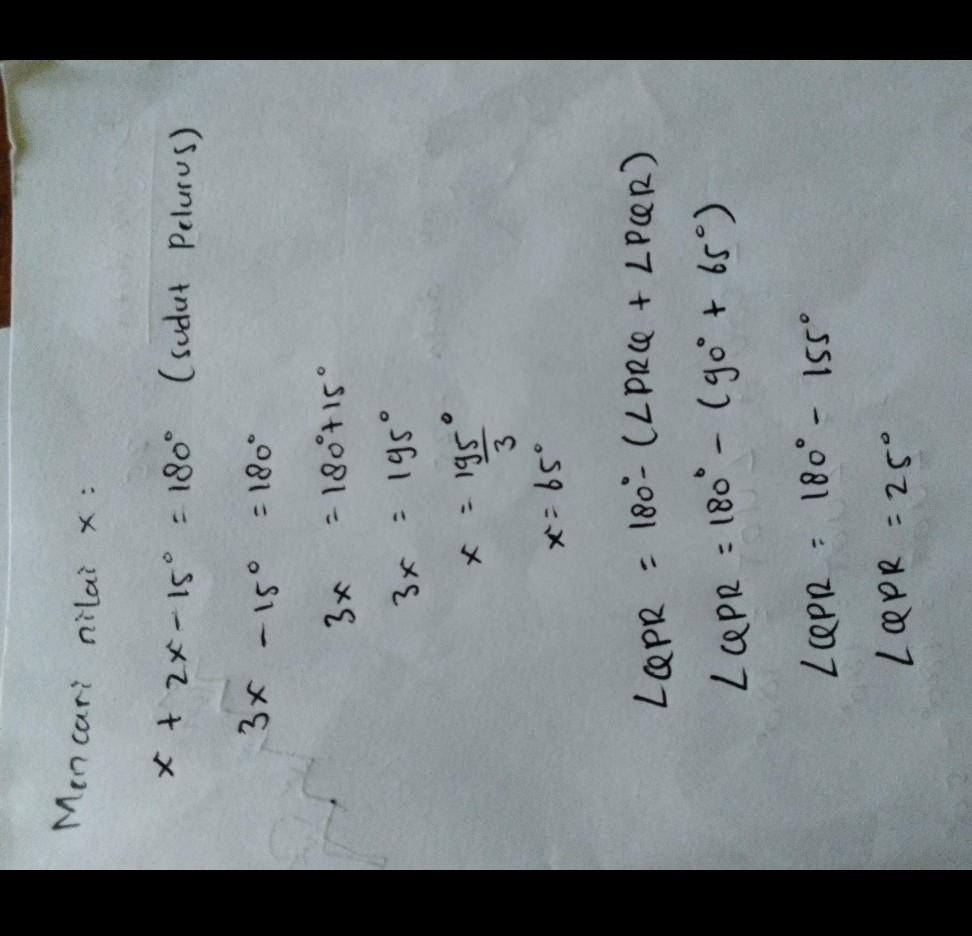 Mencari nilai x :
x + 2x - 15° = 180° (sudut Pelurus)
3x - 15° = 180°
3x = 180° + 15°
3x = 195°
x = 195°/3
x = 65°
∠QPR = 180° - (∠PRQ + ∠PQR)
∠QPR = 180° - (90° + 65°)
∠QPR = 180° - 155°
∠QPR = 25°